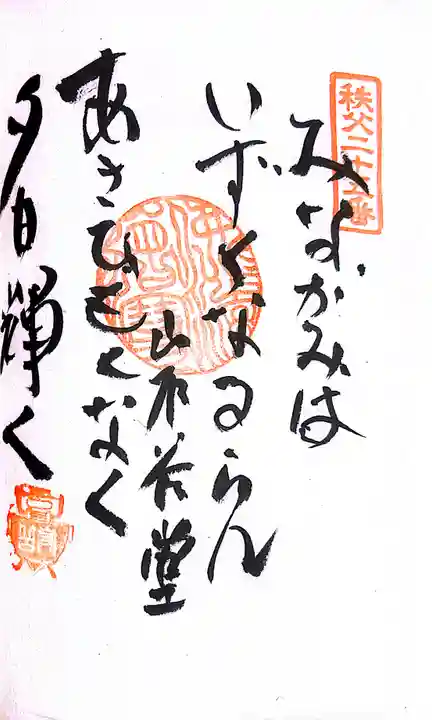 秩父二十五番
みなかみは
いずくなるらん
岩谷堂
あさひもくなく
夕日輝く